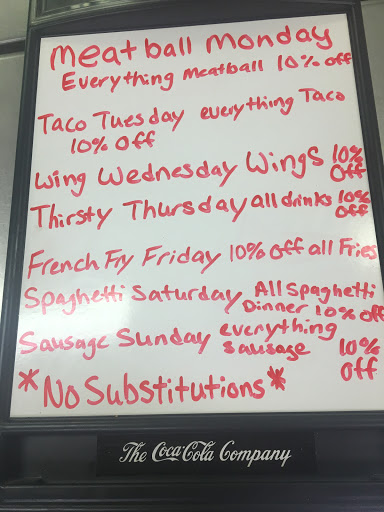 Meatball Monday
Everything Meatball 10% off
Taco Tuesday everything Taco
10% Off
Wing Wednesday Wings 10%
Off
Thirsty Thursday all drinks 10%
Off
French Fry Friday 10% off all Fries
Spaghetti Saturday All Spaghetti
Dinner 10% off
Sausage Sunday everything
Sausage 10%
Off
*No Substitutions*
The Coca-Cola Company